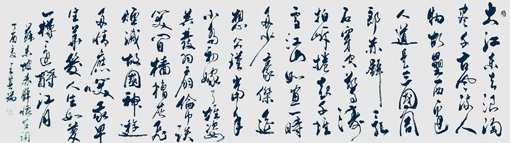 大江东去浪淘
尽千古风流人
物故垒西边
人道是三国周
郎赤壁乱
石穿空惊涛
拍岸卷起千堆
雪江山如画一时
多少豪杰遥
想公瑾当年
小乔初嫁了雄姿
英发羽扇纶巾谈
笑间樯橹灰飞
烟灭故国神游
多情应笑我早
生华发人生如梦
一樽还酹江月
苏东坡赤壁怀古词